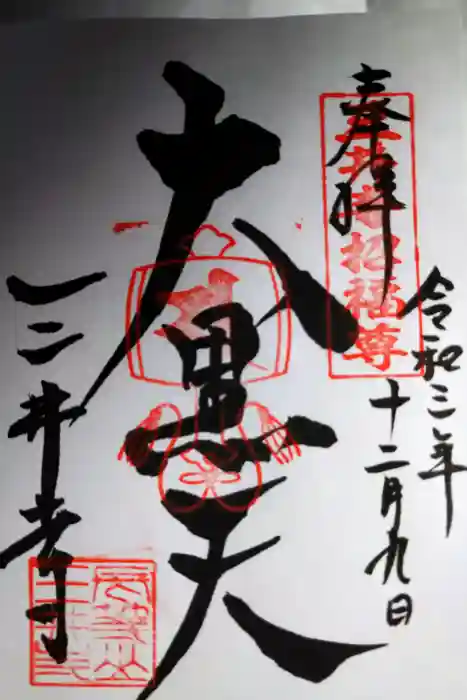 奉拝
令和三年
十二月九日
大黒天
三井寺
招福尊